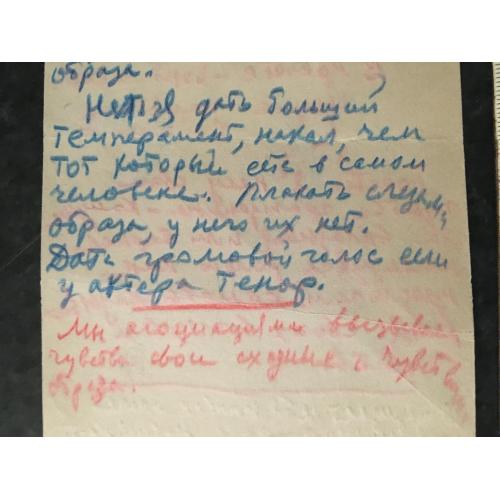 образа.
Нельзя дать больший
темперамент, накал, чем
тот который есть в самом
человеке. Плакать слезами
образа, у него их нет.
Дать громовой голос если
у актера Тенор.
Мы асоциациями вызываем
чувства свои сходные с чувствами
образа.